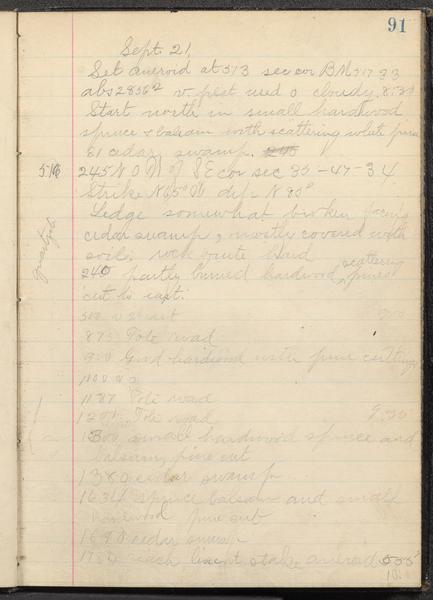 91
Sept 21
Set aneroid at 513 sec cor B M 517.33
v. pest used 0 cloudy 8:30
Start north in small hardwood
spruce & balsam with scattering white pine
81 cedar swamp.
516
245 N 0 W of SE cor sec 35-47-34
Strike N 65° W dip N 80°
Ledge somewhat broken facing
cedar swamp, mostly covered with
soil; rock quite hard
quartzite
scattering
240 partly burned hardwood, pines
cut to east.
500 v
875 Tote road
900 Good hardwood with pine cuttings
1100
1187 Tote road
1200 Tote road 9:35
small hardwood spruce and
balsam, pine cut
1380 cedar swamp
1634 spruce balsam and small
hardwood pine cut
1690 cedar swamp
reach stake aneroid 555